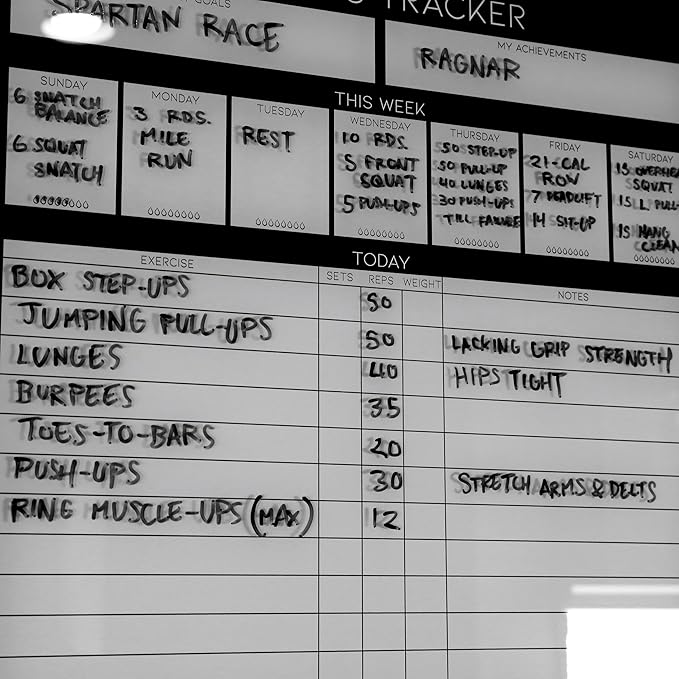 TRACKER
GOALS
SPARTAN RACE
MY ACHIEVEMENTS
RAGNAR
THIS WEEK
SUNDAY
6 SNATCH
BALANCE
6 SQUAT
SNATCH
MONDAY
3 RDS.
MILE
RUN
TUESDAY
REST
WEDNESDAY
10 RDS.
5 FRONT
SQUAT
5 PUSH-UPS
THURSDAY
50 STEP-UP
50 PULL-UP
40 LUNGES
30 PUSH-UPS
TILL FAILURE
FRIDAY
21-CAL
ROW
7 DEADLIFT
14 SIT-UP
SATURDAY
15 OVERHEA
SQUAT
15 L. PULL-
15 HANG
CLEAN
TODAY
EXERCISE SETS REPS WEIGHT NOTES
BOX STEP-UPS 50
JUMPING PULL-UPS 50 LACKING GRIP STRENGTH
LUNGES 40 HIPS TIGHT
BURPEES 35
TOES-TO-BARS 20
PUSH-UPS 30 STRETCH ARMS & DELTS
RING MUSCLE-UPS (MAX) 12